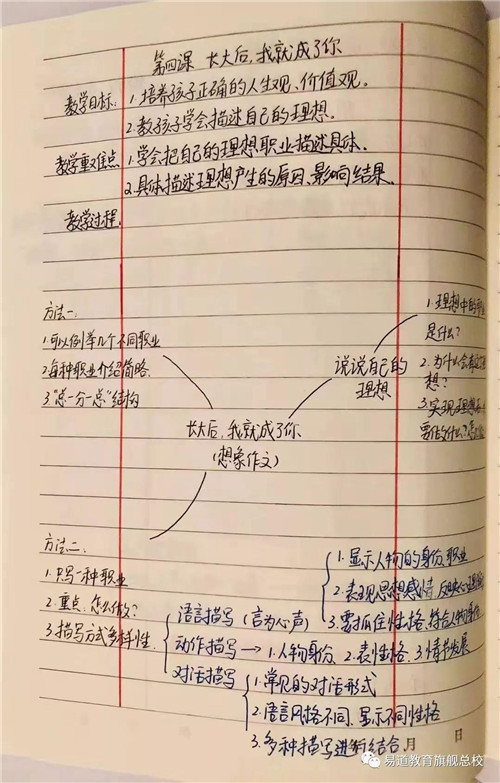 第四课 长大后,我就成了你
教学目标: 1.培养孩子正确的人生观、价值观。
2.教孩子学会描述自己的理想。
教学重难点: 1.学会把自己的理想职业描述具体。
2.具体描述理想产生的原因、影响结果。
教学过程:
方法一:
1.可以例举几个不同职业
2.每种职业介绍简略.
3."总一分一总"结构
说说自己的
理想
1.理想中的
是什么?
2.为什么会有
想?
3.实现理想
要做什么?
长大后,我就成了你
(想象作文)
方法二:
1.只写一种职业
2.重点:怎么做?
3.描写方式多样性.
语言描写(言为心声)
1.显示人物的身份、职业
2.表现思想感情,反映心理
3.要抓住性格,符合人物身份
动作描写→1.人物身份 2.表性格 3.情节发展
对话描写
1.常见的对话形式
2.语言风格不同、显示不同性格
3.多种描写进行结合
月 日
易道教育旗舰总校